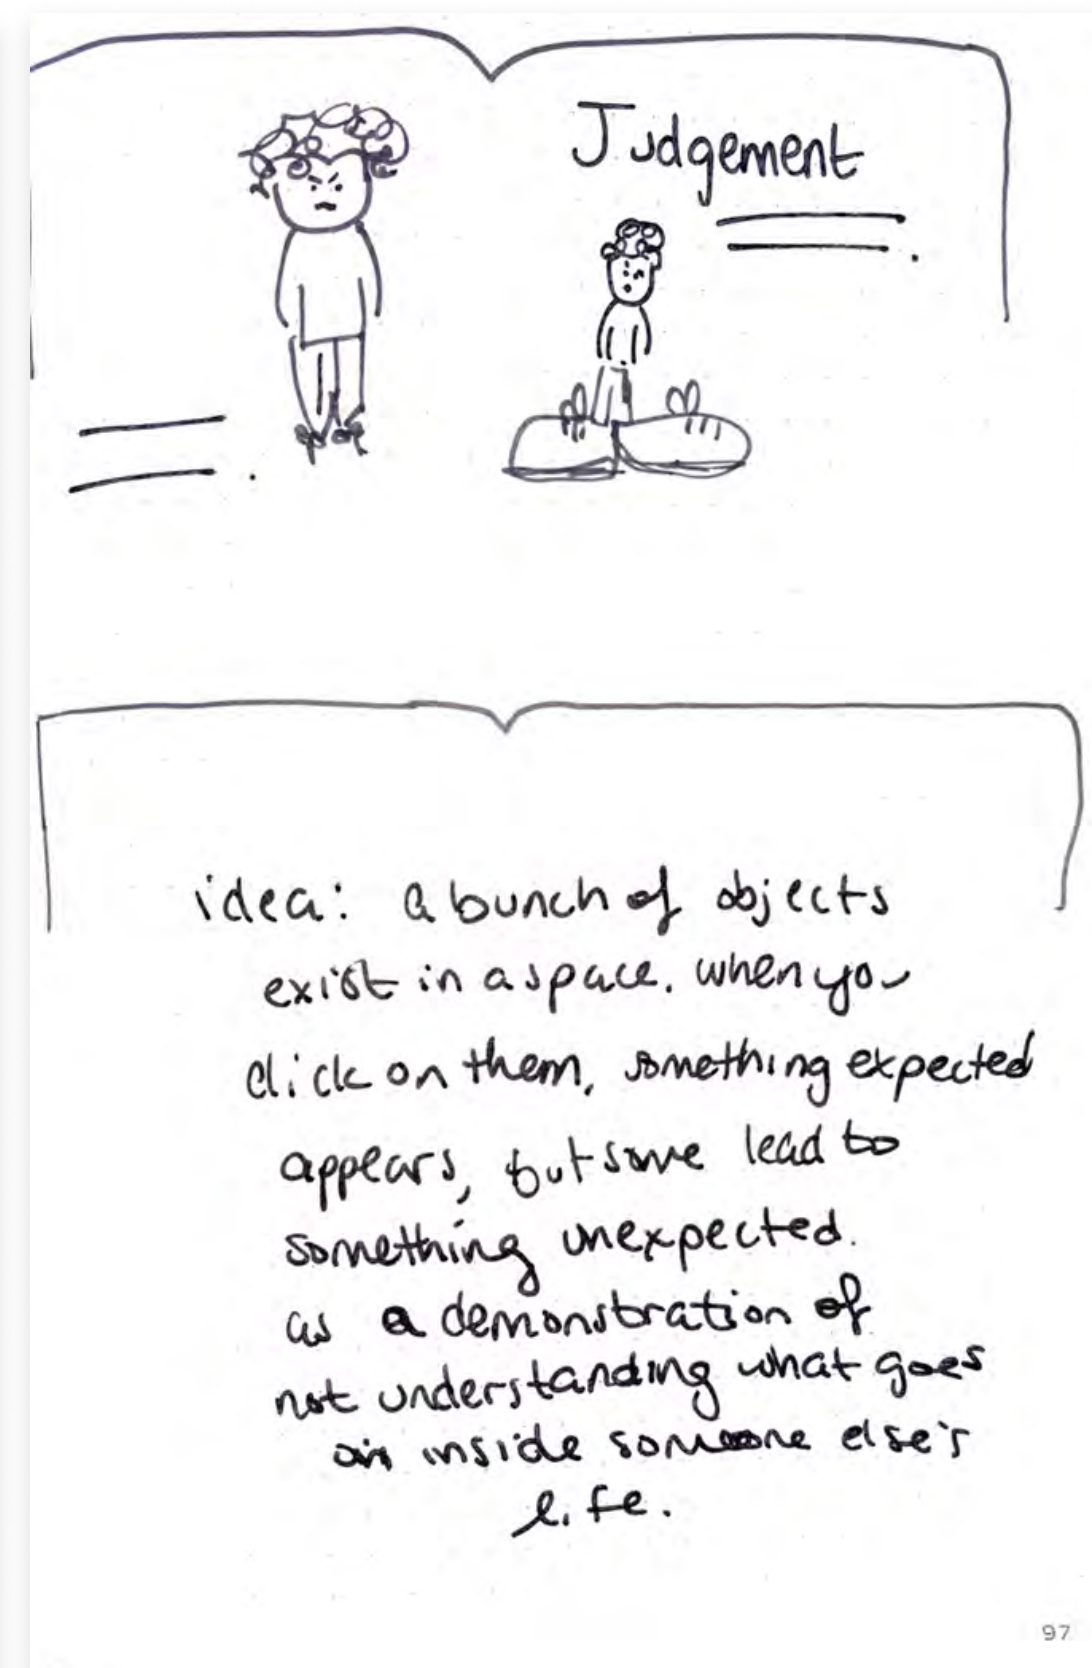 Judgement
idea: a bunch of objects
exist in a space. when you
click on them, something expected
appears, but some lead to
something unexpected.
as a demonstration of
not understanding what goes
on inside someone else's
life.
97